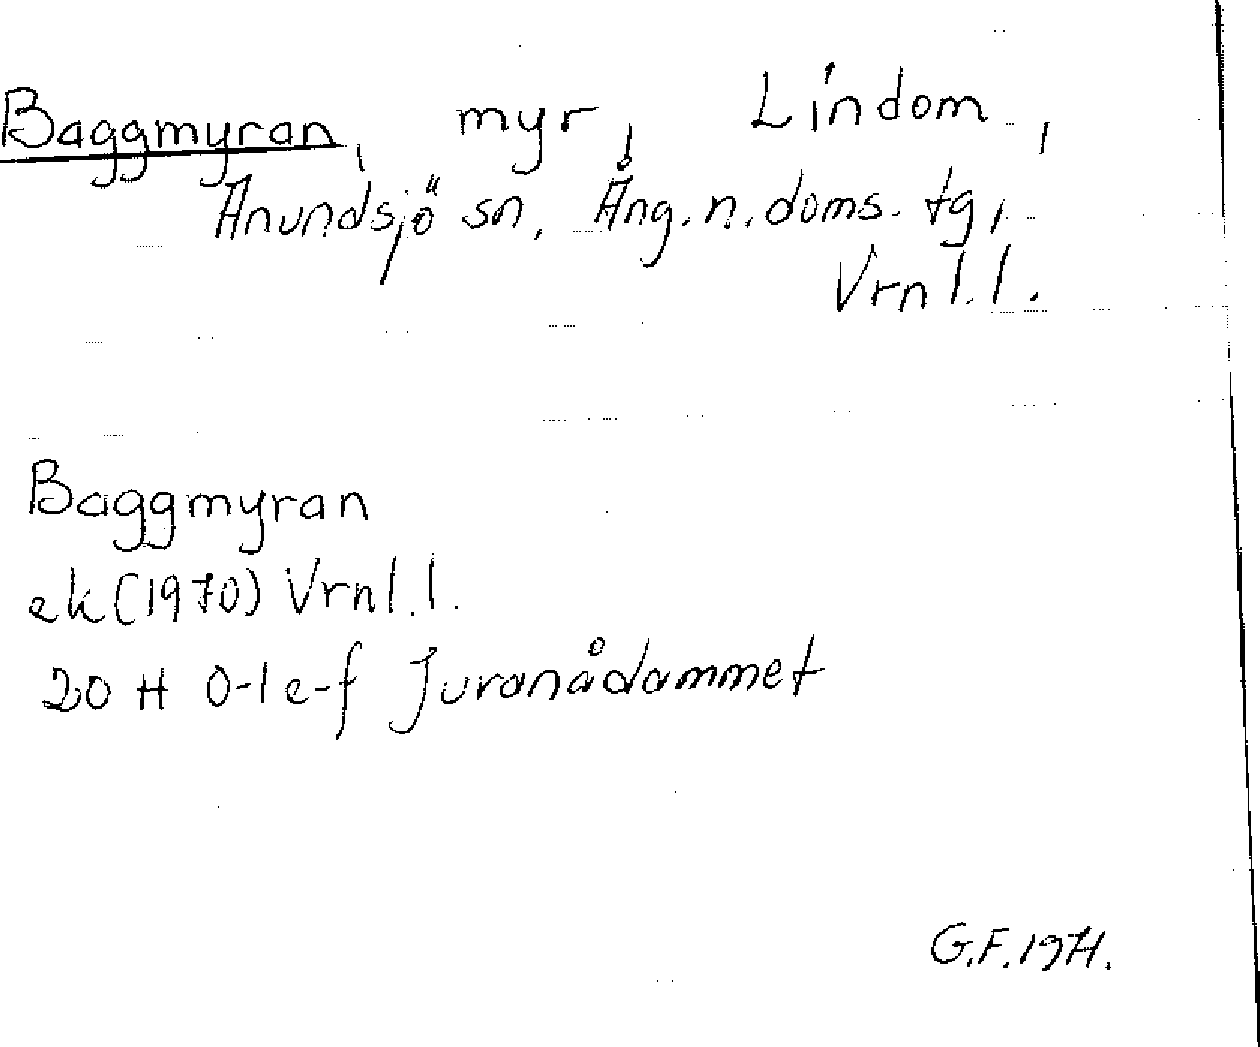 Baggmyran, myr, Lindom.,
Anundsjö sn, Ång.n.doms.tg,
Vrnl.l.
Baggmyran
ek(1970) Vrnl.l.
20 H 0-1 e-f Juranådammet
G.F.1971.